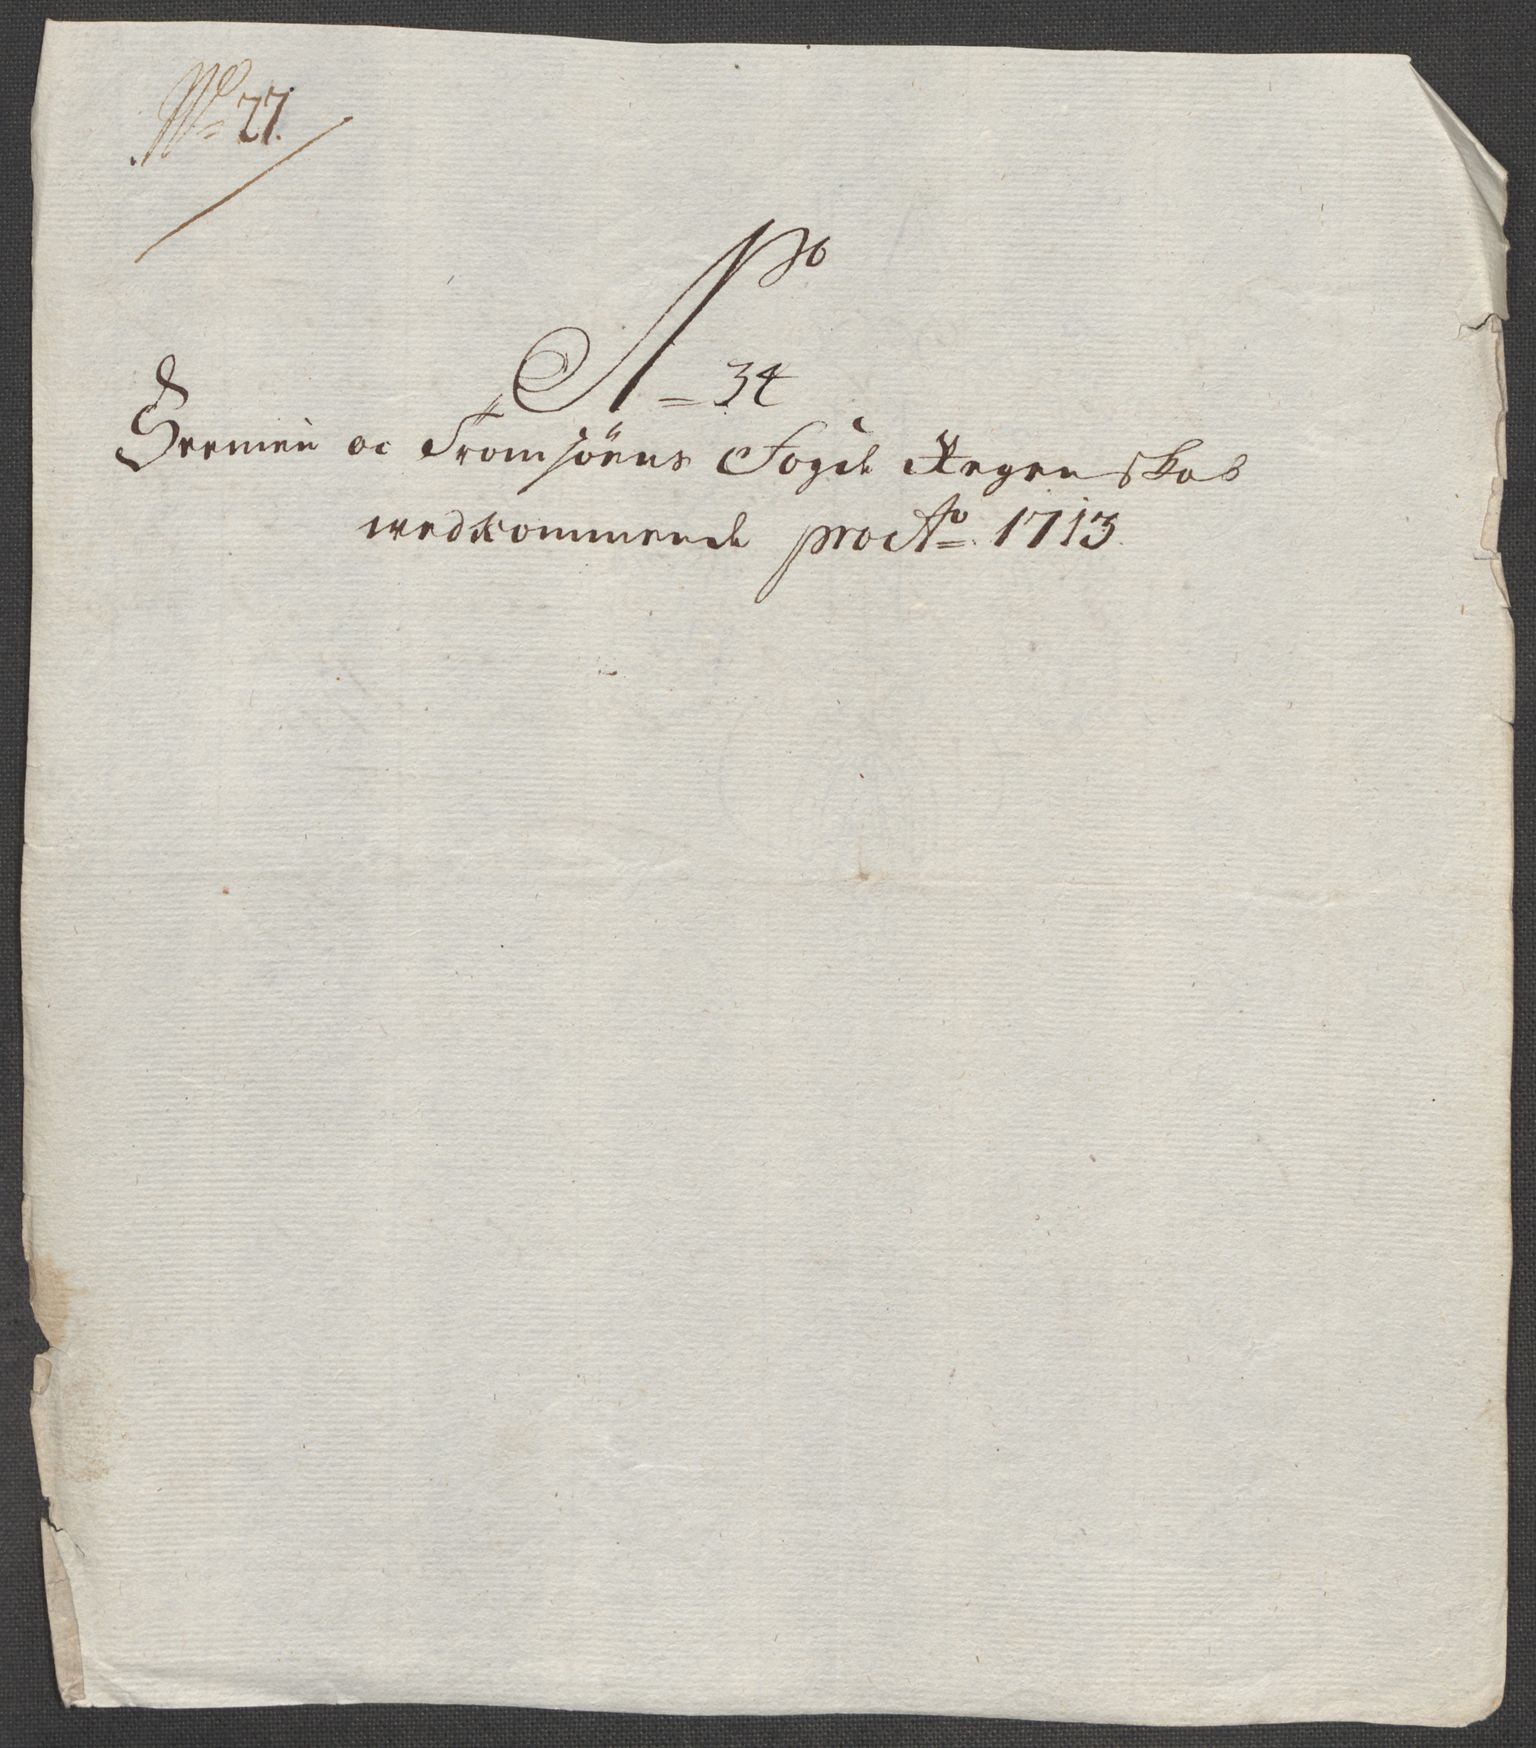 No 27.
No 34
Seenien oc Tromsöens Fogde Regenskab
wedkommende pro Ao. 1713.